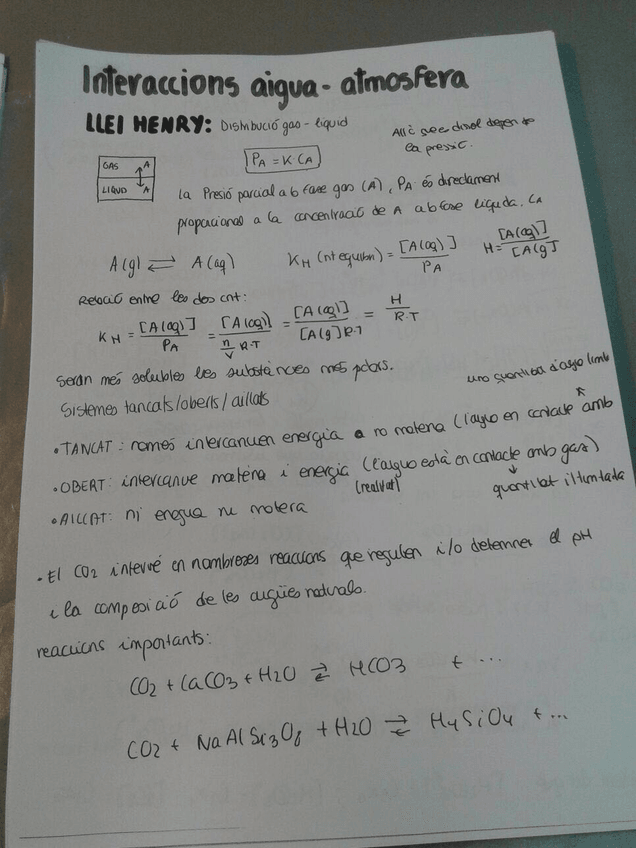 Interaccions aigua - atmosfera
LLEI HENRY: Distribució gas - líquid
Allò que es dissol depen de
la pressió.
PA = K CA
GAS A
LIQUID A
la Presió parcial a b fase gas (A), PA és directament
proporcional a la concentració de A a b fase líquida. CA
A(g) ⇄ A(aq)
KH (nt equilibri) = [A(aq)] / PA
H = [A(aq)] / [A(g)]
Relació entre les dos cnt:
KH = [A(aq)] / PA = [A(aq)] / (n/V R·T) = [A(aq)] / [A(g)] R·T = H / R·T
Seran més solubles les substàncies més polars.
una quantitat d'aigua limit
Sistemes tancats/oberts/aïllats
• TANCAT: només intercanvien energia no materia (l'aigua en contacte amb
• OBERT: intercanvi matèria i energia (l'aigua està en contacte amb gas)
(realitat)
quantitat il·limitada
• AILLAT: ni energia ni materia
• El CO2 intervé en nombroses reaccions que regulen i/o determinen el pH
i la composició de les aigües naturals.
reaccions importants:
CO2 + CaCO3 + H2O ⇄ HCO3 + ...
CO2 + NaAlSi3O8 + H2O ⇄ H4SiO4 + ...